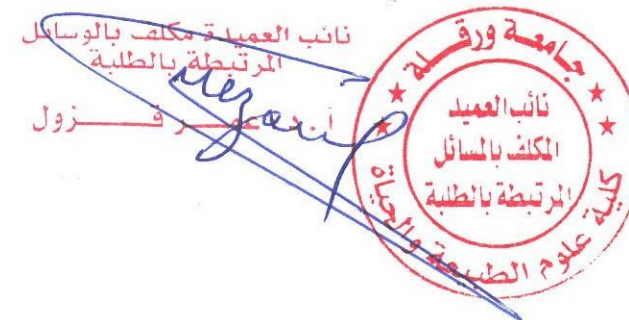 نائب العميدة مكلف بالوسائل
المرتبطة بالطلبة
عمر قــــزول
جامعة ورقلة
نائب العميد
المكلف بالمسائل
المرتبطة بالطلبة
كلية علوم الطبيعة والحياة